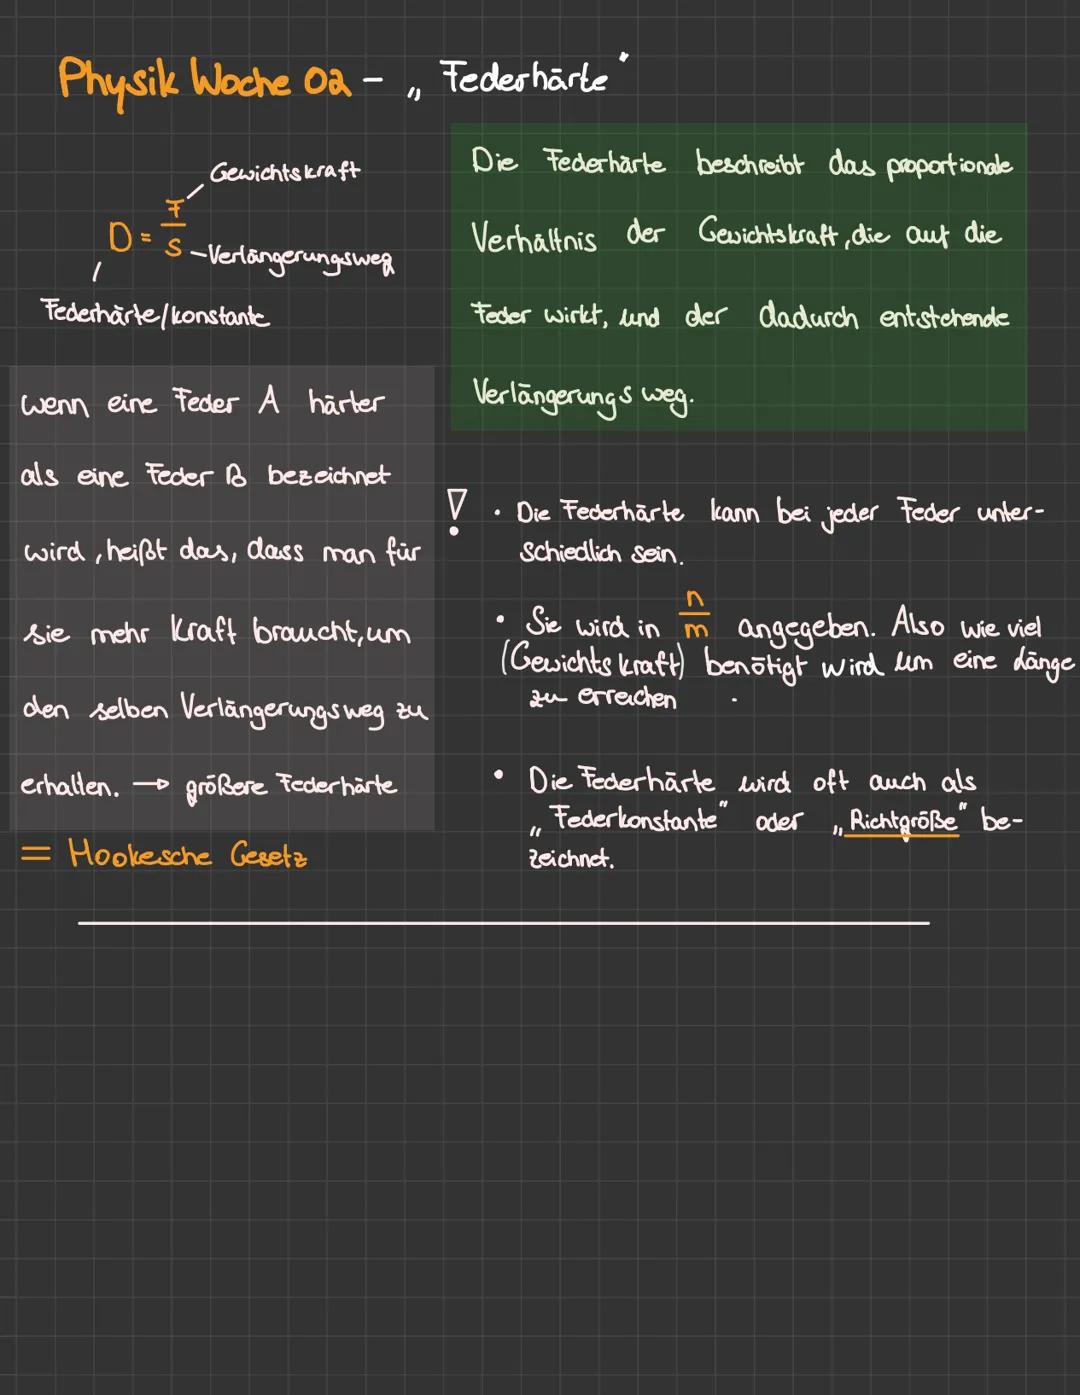 Physik Woche 02 - „Federhärte"
Gewichtskraft
D = F/s
Verlängerungsweg
Federhärte/konstante
Die Federhärte beschreibt das proportionale
Verhältnis der Gewichtskraft, die auf die
Feder wirkt, und der dadurch entstehende
Verlängerungsweg.
wenn eine Feder A härter
als eine Feder B bezeichnet
wird, heißt das, dass man für
sie mehr Kraft braucht, um
den selben Verlängerungsweg zu
erhalten. → größere Federhärte
= Hookesche Gesetz
! • Die Federhärte kann bei jeder Feder unter-
schiedlich sein.
• Sie wird in n/m angegeben. Also wie viel
(Gewichtskraft) benötigt wird um eine Länge
zu erreichen .
• Die Federhärte wird oft auch als
„Federkonstante" oder „Richtgröße" be-
zeichnet.